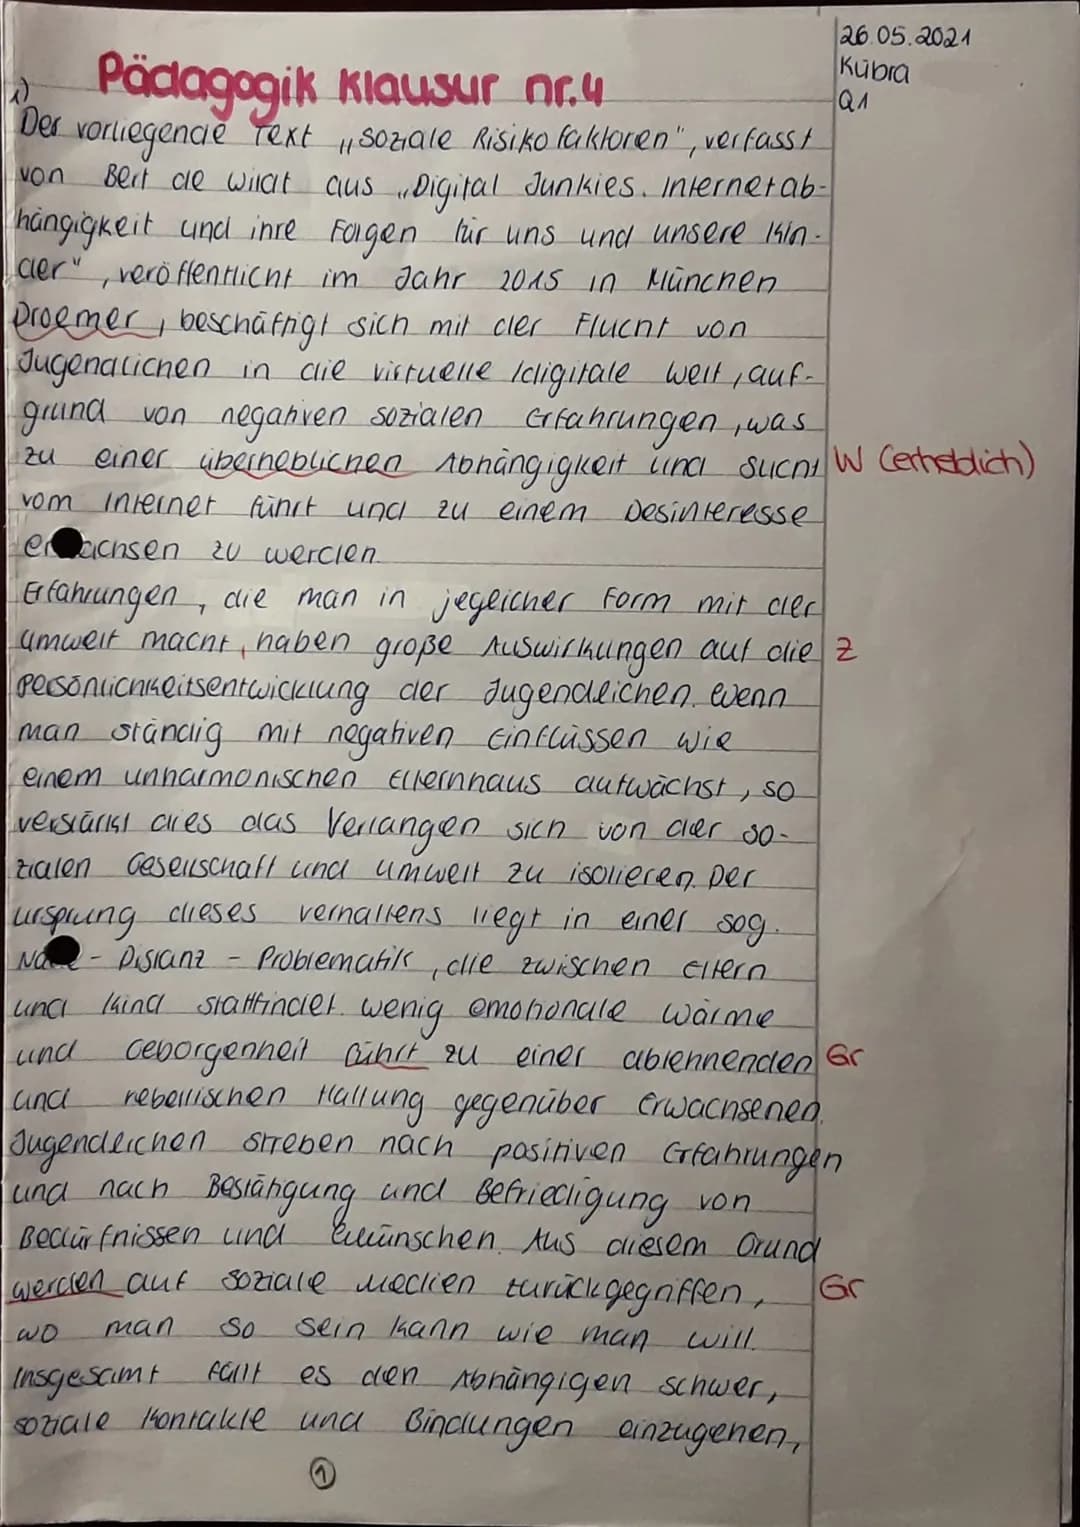 26.05.2021
Kübra
Q1
Pädagogik Klausur nr.4
1)
Der vorliegende Text „soziale Risikofaktoren", verfasst
von Bert de Wildt aus „Digital Junkies. Internetab-
hängigkeit und ihre Folgen für uns und unsere Kin-
der", veröffentlicht im Jahr 2015 in München
Droemer, beschäftigt sich mit der Flucht von
Jugendlichen in die virtuelle/digitale Welt, auf-
grund von negativen sozialen Erfahrungen, was
zu einer überheblichen Abhängigkeit und sucht W (erheblich)
vom Internet führt und zu einem Desinteresse
erwachsen zu werden.
Erfahrungen, die man in jegleicher Form mit der
Umwelt macht, haben große Auswirkungen auf die Z
Persönlichkeitsentwicklung der Jugendlichen. Wenn
man ständig mit negativen Einflüssen wie
einem unharmonischen Elternhaus aufwächst, so
verstärkt dies das Verlangen sich von der so-
zialen Gesellschaft und Umwelt zu isolieren. Der
Ursprung dieses Verhaltens liegt in einer sog.
Nähe - Distanz - Problematik, die zwischen Eltern
und Kind stattfindet. Wenig emotionale Wärme
und Geborgenheit führt zu einer ablehnenden Gr
und rebellischen Haltung gegenüber Erwachsenen.
Jugendlichen streben nach positiven Erfahrungen
und nach Bestätigung und Befriedigung von
Bedürfnissen und Wünschen. Aus diesem Grund
werden auf soziale Medien zurückgegriffen, Gr
wo man so sein kann wie man will.
Insgesamt fällt es den Abhängigen schwer,
soziale Kontakte und Bindungen einzugehen,
1